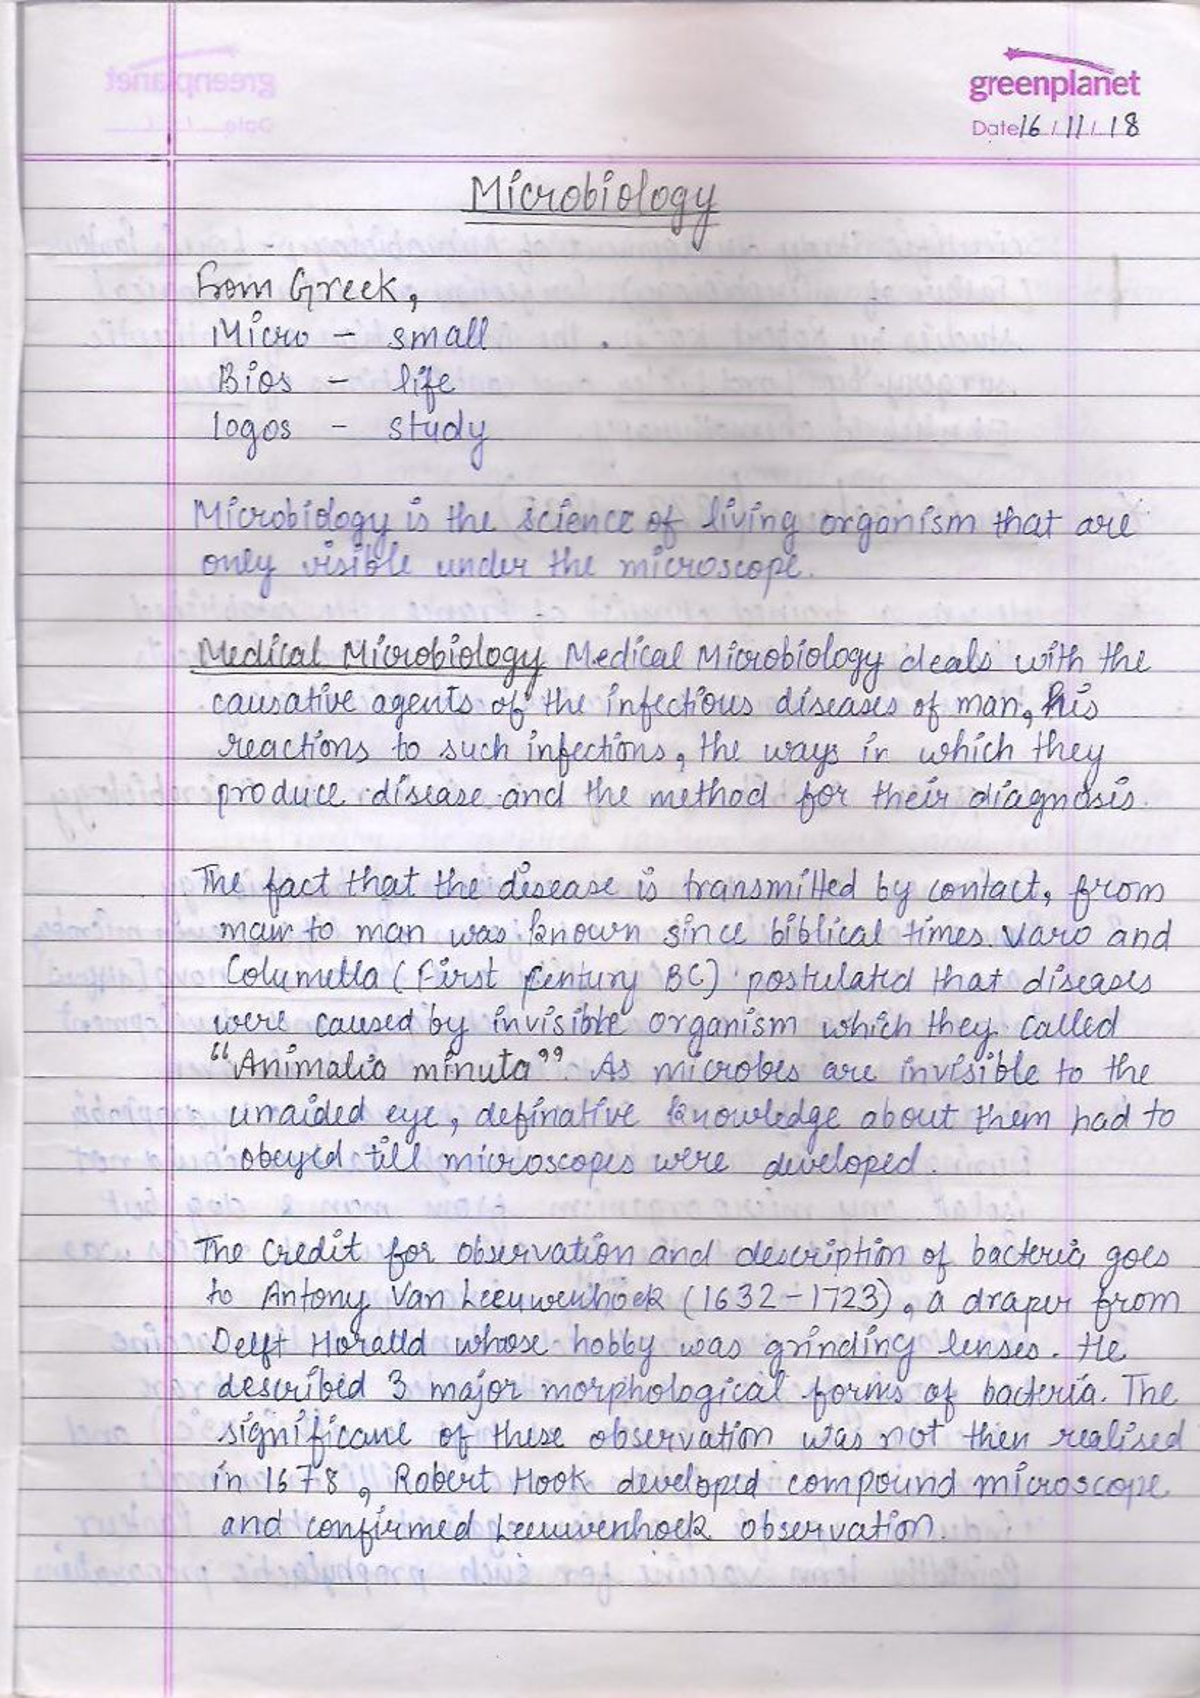 greenplanet
Date 16/11/18
Microbiology
From Greek,
Micro - small
Bios - life
logos - study
Microbiology is the science of living organism that are
only visible under the microscope.
Medical Microbiology Medical Microbiology deals with the
causative agents of the infectious diseases of man, his
reactions to such infections, the ways in which they
produce disease and the method for their diagnosis.
The fact that the disease is transmitted by contact, from
man to man was known since biblical times. Varo and
Columella (First Century BC) postulated that diseases
were caused by invisible organism which they called
"Animalia minuta". As microbes are invisible to the
unaided eye, definative knowledge about them had to
obeyed till microscopes were developed.
The credit for observation and description of bacteria goes
to Antony Van Leeuwenhoek (1632-1723), a draper from
Delft whose hobby was grinding lenses. He
described 3 major morphological forms of bacteria. The
significane of these observation was not then realised
in 1678, Robert Hook developed compound microscope
and confirmed Leeuwenhoek observation.